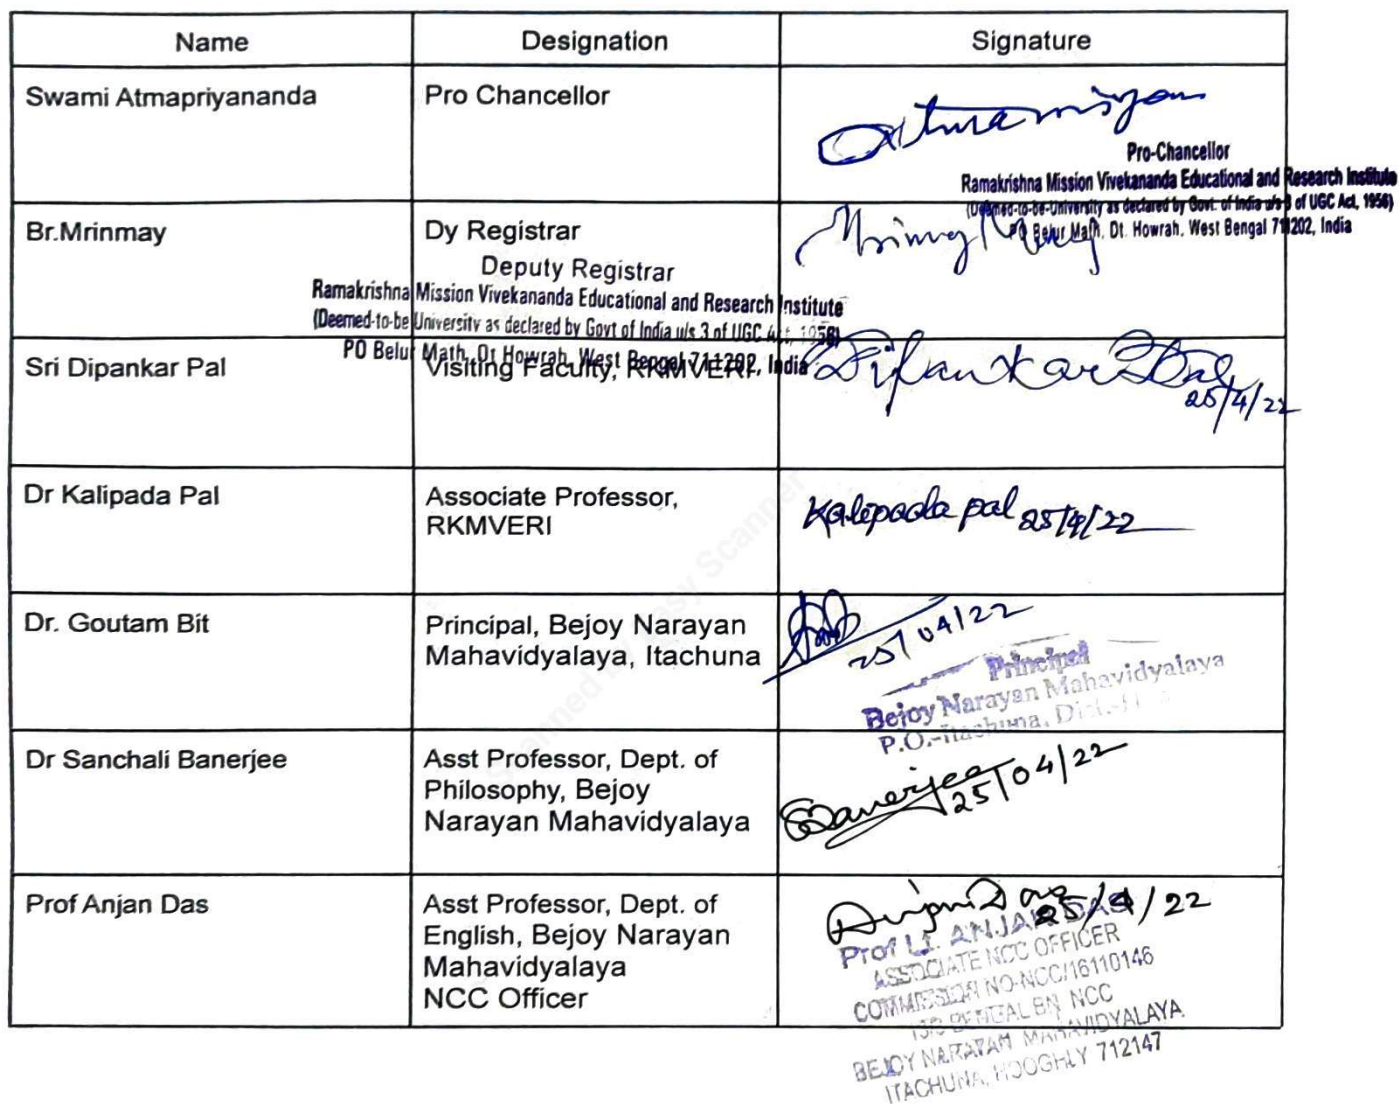 Name Designation Signature
Swami Atmapriyananda Pro Chancellor
Pro-Chancellor
Ramakrishna Mission Vivekananda Educational and Research Institute
(Deemed-to-be-University as declared by Govt. of India u/s 3 of UGC Act, 1956)
PO Belur Math, Dt. Howrah, West Bengal 711202, India
Br.Mrinmay Dy Registrar
Deputy Registrar
Ramakrishna Mission Vivekananda Educational and Research Institute
(Deemed-to-be University as declared by Govt of India u/s 3 of UGC Act, 1956)
PO Belur Math, Dt Howrah, West Bengal 711202, India
Sri Dipankar Pal Visiting Faculty, RKMVERI Dipankar Pal
25/4/22
Dr Kalipada Pal Associate Professor,
RKMVERI
Kalipada pal 25/4/22
Dr. Goutam Bit Principal, Bejoy Narayan
Mahavidyalaya, Itachuna
25/04/22
Principal
Bejoy Narayan Mahavidyalaya
P.O.-Itachuna, Dist.-
Dr Sanchali Banerjee Asst Professor, Dept. of
Philosophy, Bejoy
Narayan Mahavidyalaya
SBanerjee
25/04/22
Prof Anjan Das Asst Professor, Dept. of
English, Bejoy Narayan
Mahavidyalaya
NCC Officer
Anjan Das
25/4/22
Prof Lt. ANJAN DAS
ASSOCIATE NCC OFFICER
COMMISSION NO-NCC/16110146
BENGAL BN NCC
BEJOY NARAYAN MAHAVIDYALAYA
ITACHUNA, HOOGHLY 712147
Scanned by Easy Scanner